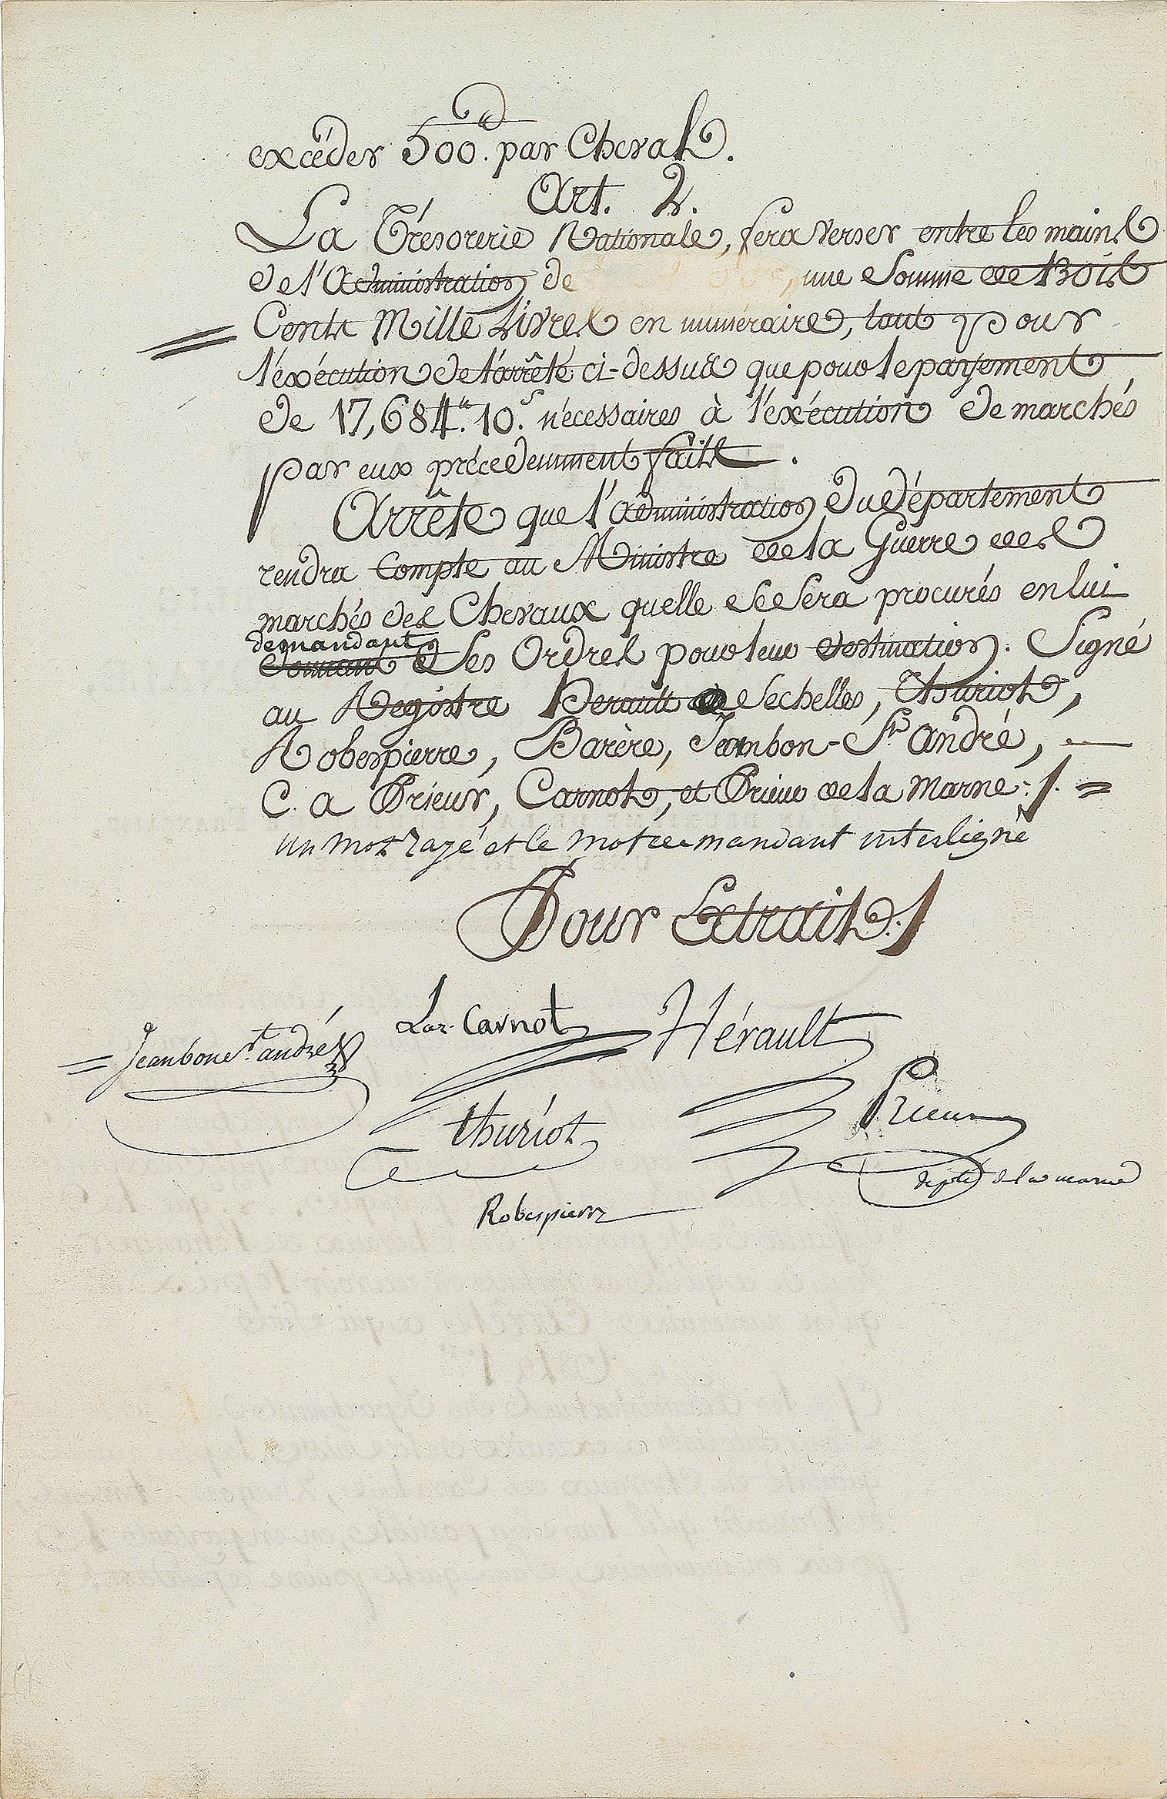 excéder 500.ᵗᵗ par Cheval.
Art. 2.
La Trésorerie Nationale, fera verser entre les mains
de l'Administration de , une Somme de trois
Cents Mille Livres en numéraire, tant pour
l'exécution de l'arrêté ci-dessus que pour le payement
de 17,684.ᵗᵗ 10.ˢ nécessaires à l'exécution de marchés
par eux précédemment faits.
Arrête que l'administration du département
rendra Compte au Ministre de la Guerre des
marchés des Chevaux quelle se sera procurés en lui
demandant
ses Ordres pour leur destination. Signé
au Registre Herault de Sechelles, Thuriot,
Robespierre, Barère, Jeambon-Sᵗ André,
C. a Prieur, Carnot, et Prieur de la Marne ./. =
un mot rayé et le mot demandant interligné
Pour Extrait ./
Laz. Carnot Hérault
Jeanbon Sᵗ. andré
Prieur
thuriot
député de la marne
Robespierre